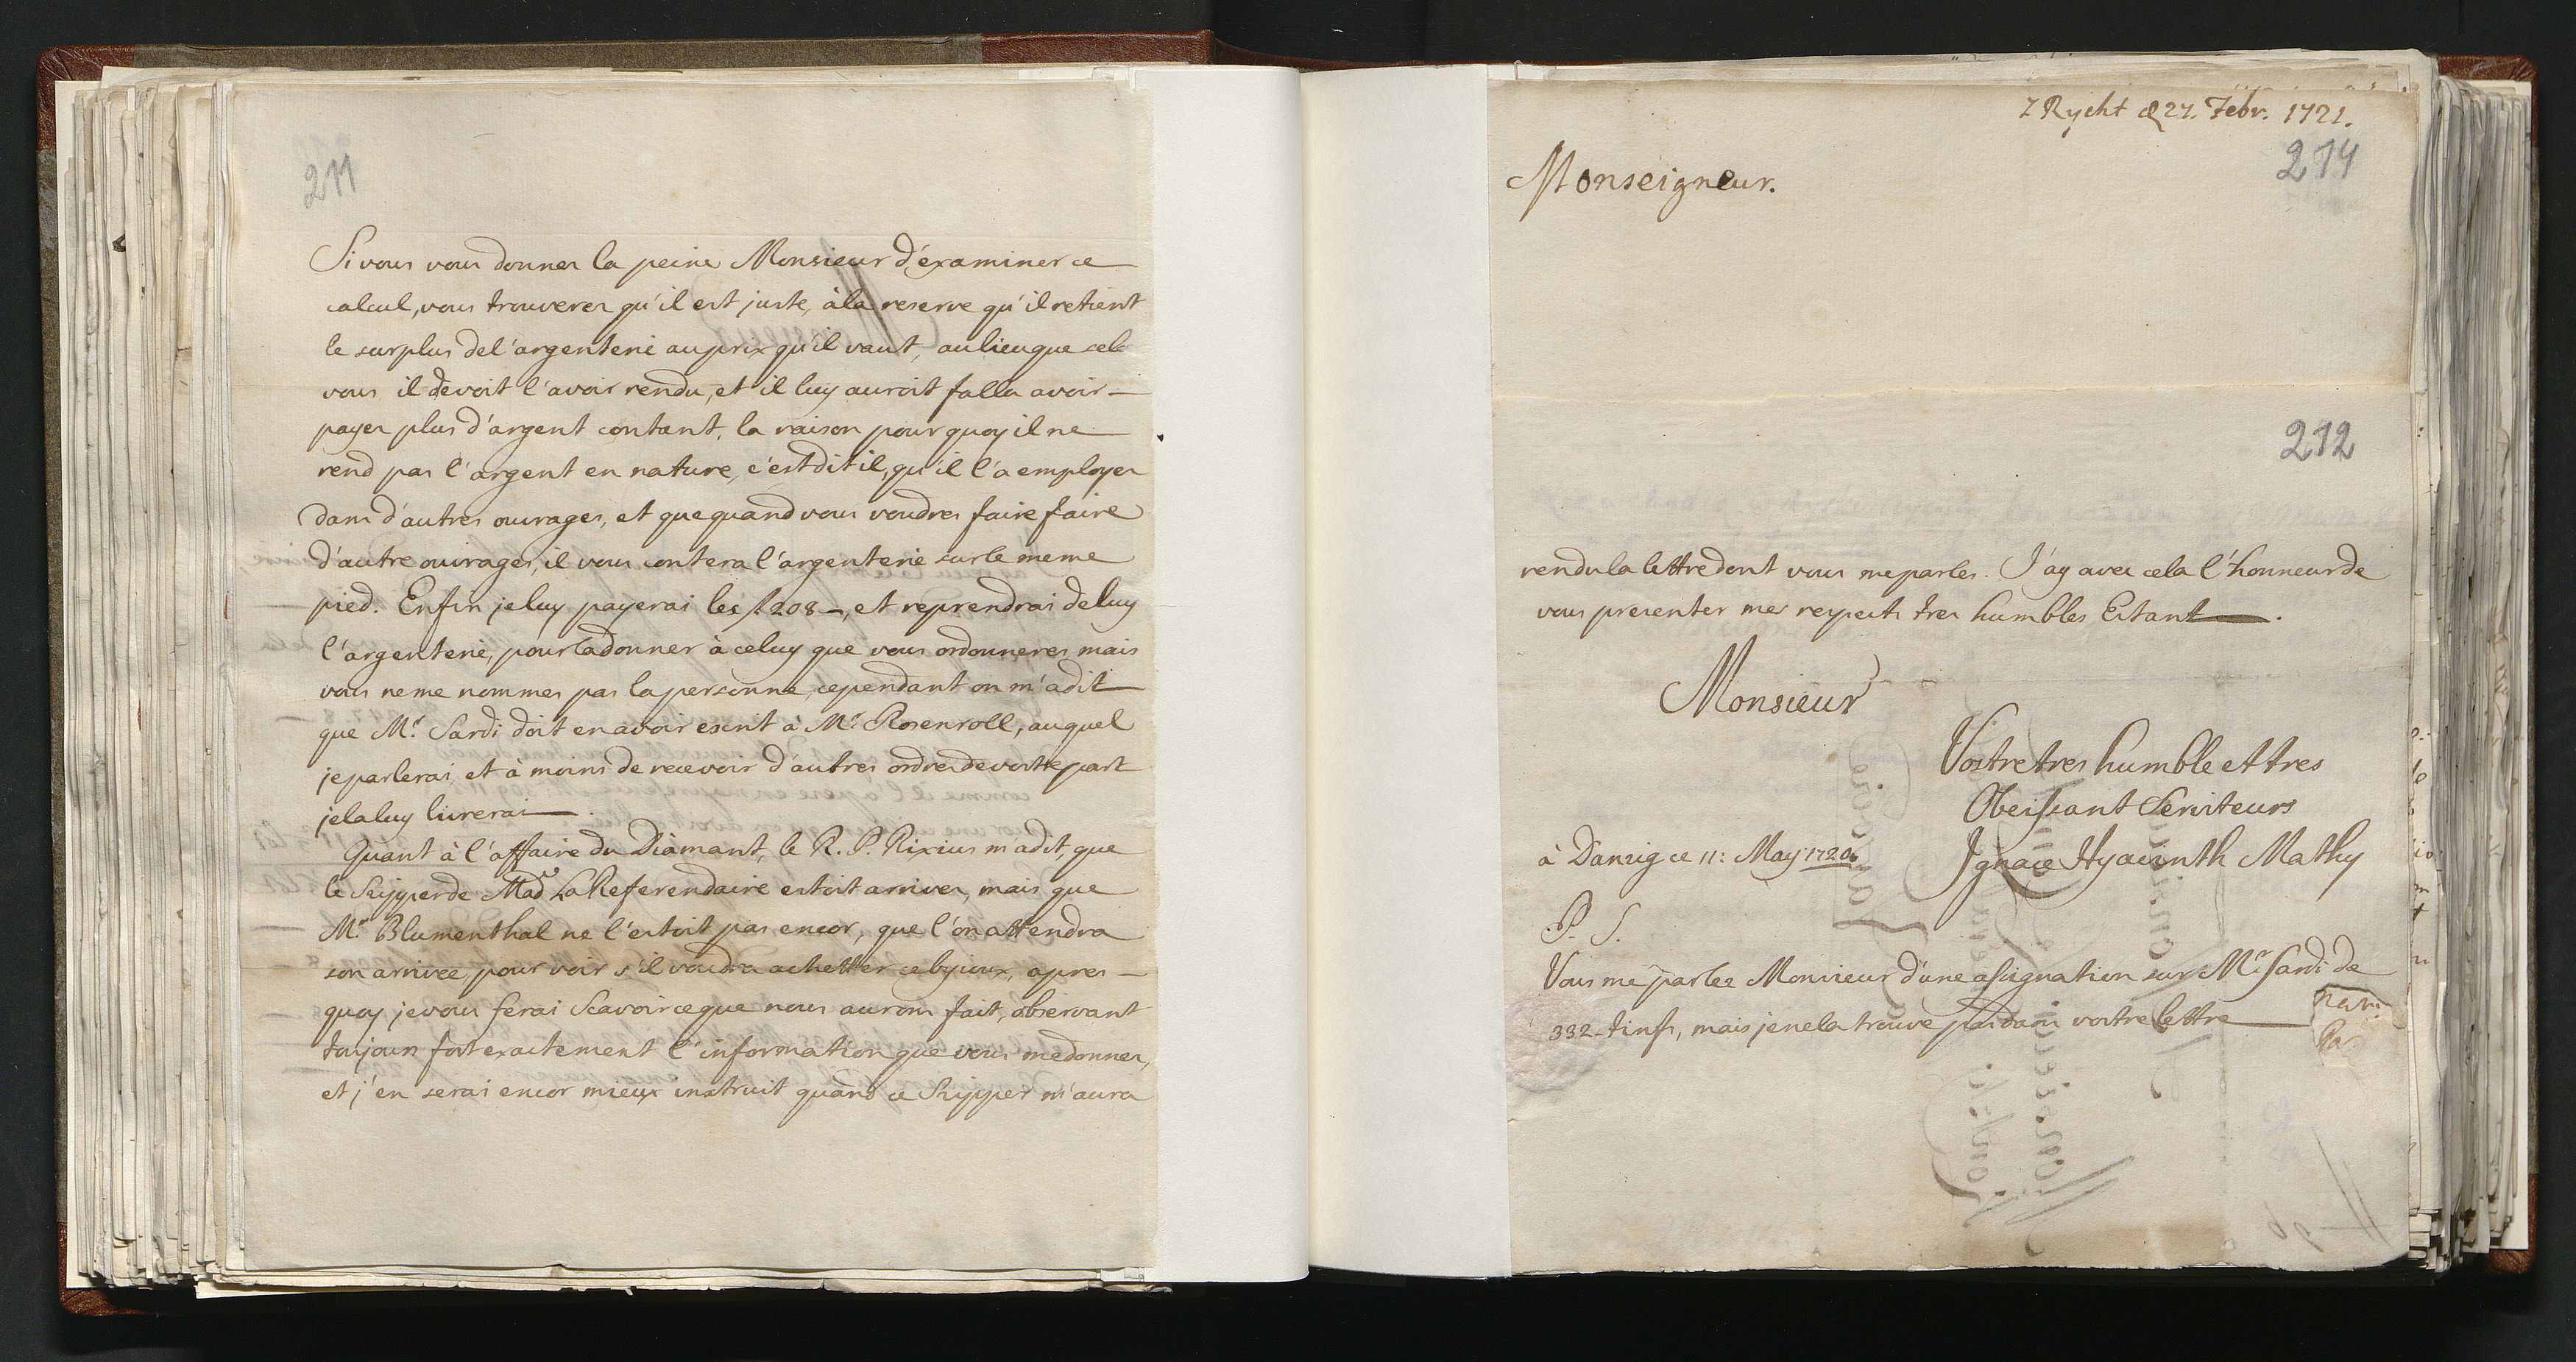 211
Si vous vous donnez la peine Monsieur d'éxaminer ce
calcul, vous trouverez qu'il est juste, à la reserve qu'il retient
le surplus de l'argenterie au prix qu'il vaut, au lieu que selo
vous il devoit l'avoir rendu, et il luy auroit fallu avoir
payer plus d'argent contant, la raison pour quoy il ne
rend pas l'argent en nature, c'est dit il, qu'il l'a employer
dans d'autres ouvrages, et que quand vous voudres faire faire
d'autre ouvrages, il vous contera l'argenterie sur le meme
pied. Enfin je luy payerai les f 208 –, et reprendrai de luy
l'argenterie, pour la donner à celuy que vous ordonneres mais
vous ne me nommes pas la personne, cependant on m'a dit
que Mr. Sardi doit en avoir escrit à Mr. Rosenroll, auquel
je parlerai et à moins de recevoir d'autres ordres de vostre part
je la luy livrerai.
Quant à l'affaire du Diamant, le R. P. Rixius m'a dit, que
le Skipper de Made La Referendaire estoit arriver, mais que
Mr. Blumenthal ne l'estoit pas encor, que l'on attendra
son arrivee pour voir s'il voudra achetter ce byioux, apres
quoy je vous ferai Scavoir ce que nous aurons fait, observant
toujours fort exactement l'information que vous me donner,
et j'en serai encor mieux instruit quand ce Skipper m'aura
Z Rycht d 27. Febr. 1721.
214
Monseigneur.
212
rendu la lettre dont vous me parles. J'ay avec cela l'honneur de
vous presenter mes respects tres humbles Estant.
Monsieur
Vostre tres humble et tres
Obeissant Serviteurs
à Danzig ce 11: May 1720. Ignace Hyacinth Mathy
P. S.
Vous me parlez Monsieur d'une assignation sur Mr Sardi de
332 – tinfs, mais je ne la trouve pas dans vostre lettre